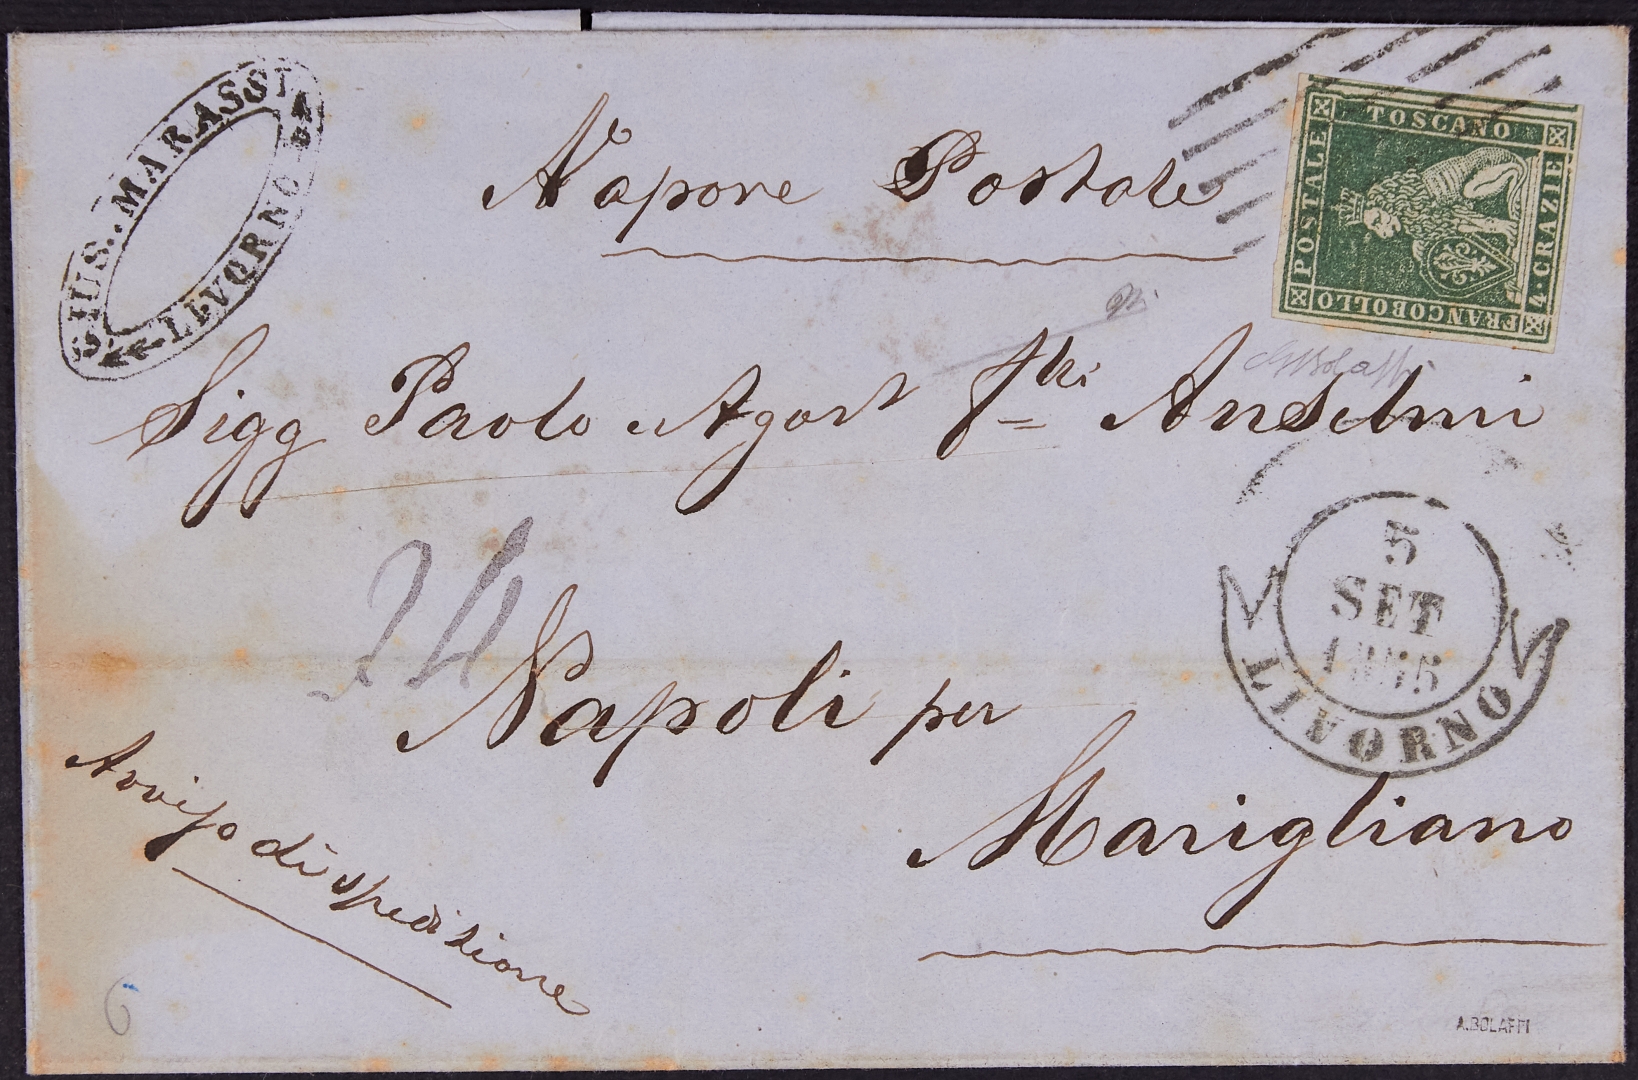 GIUS. MARASSI
LIVORNO
Vapore Postale
FRANCOBOLLO
POSTALE
TOSCANO
4 CRAZIE
Sigg Paolo Agost f.lli Anselmi
24
Napoli per
Marigliano
5
SET
1855
LIVORNO
Avviso di spedizione
6
A.BOLAFFI